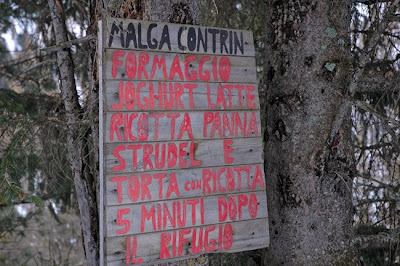 MALGA CONTRIN
FORMAGGIO
JOGHURT LATTE
RICOTTA PANNA
STRUDEL E
TORTA CON RICOTTA
5 MINUTI DOPO
IL RIFUGIO